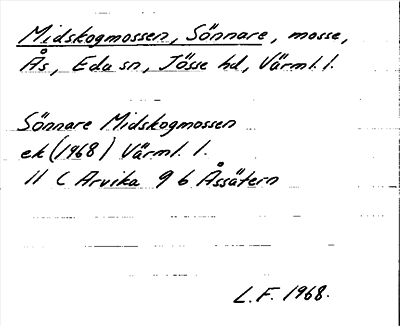 Midskogmossen, Sönnare, mosse,
Ås, Eda sn, Jösse hd, Värml. l.
Sönnare Midskogmossen
ek (1968) Värml. l.
11 C Arvika 9 b Åssätern
L.F. 1968.